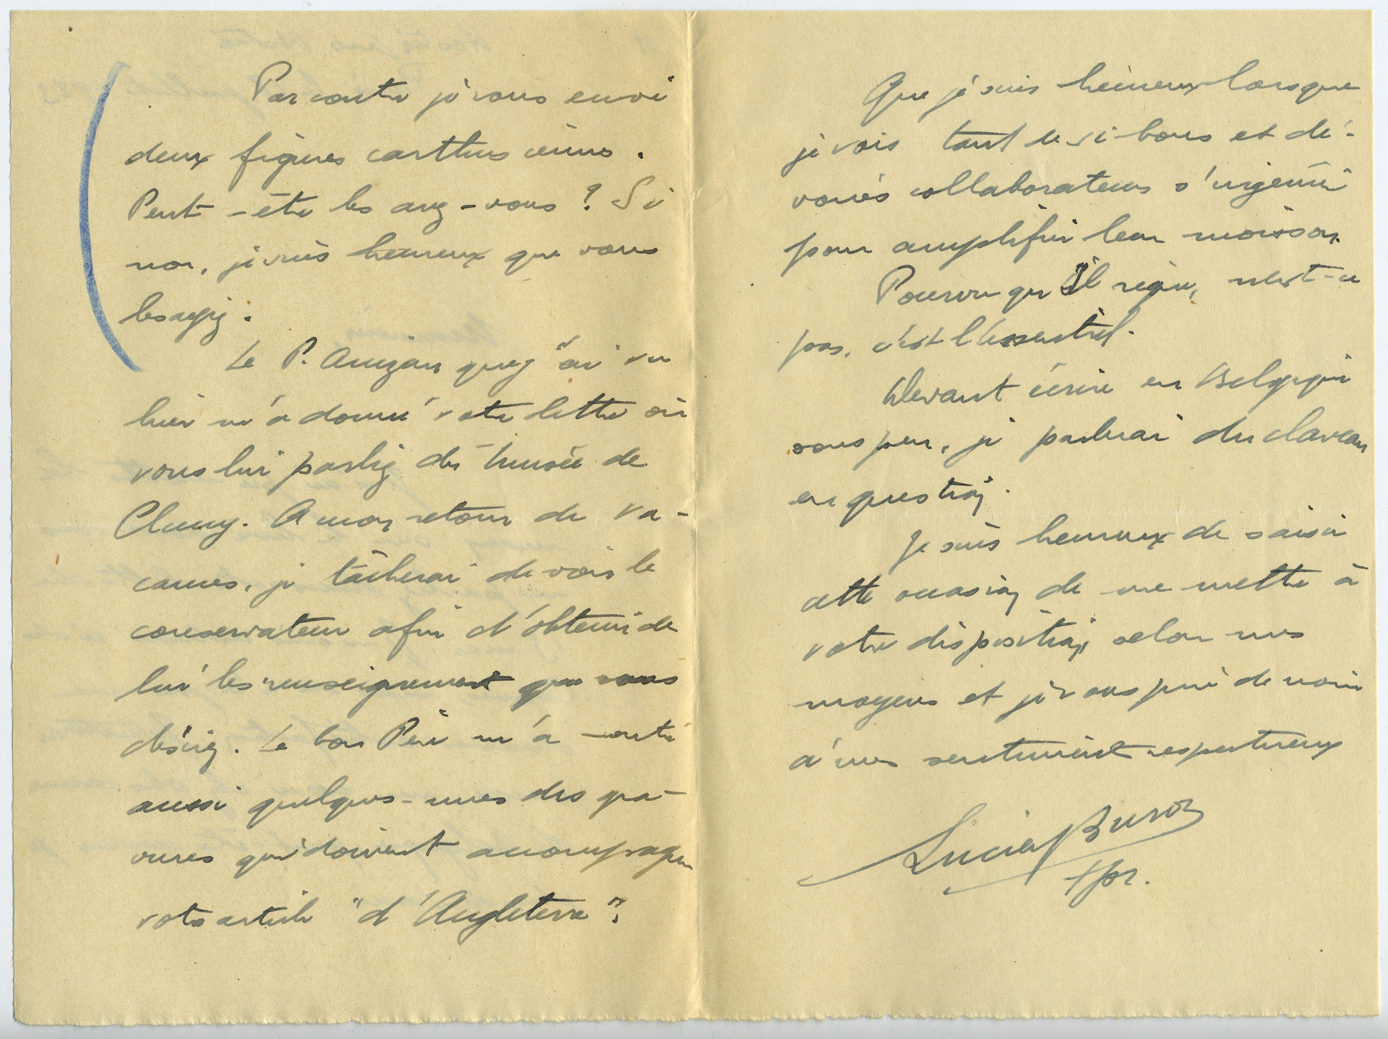 Par contre je vous envoi
deux figures carthusiennes.
Peut-être les avez-vous ? Si
non, je suis heureux que vous
les ayez.
Le P. Anizan que j'ai vu
hier m'a donné votre lettre où
vous lui parlez du musée de
Cluny. A mon retour de va-
cances, je tâcherai de voir le
conservateur afin d'obtenir de
lui les renseignement que vous
désirez. Le bon Père m'a montré
aussi quelques-unes des gra-
vures qui doivent accompagner
votre article "d'Angleterre".
Que je suis heureux lorsque
je vois tant de si bons et dé-
voués collaborateurs s'ingénier
pour amplifier leur moisson.
Pourvu qu'Il règne, n'est-ce
pas, c'est l'essentiel.
Devant écrire en Belgique
sous peu, je parlerai du claveau
en question.
Je suis heureux de saisir
cette occasion de me mettre à
votre disposition selon mes
moyens et je vous prie de croire
à mes sentiment respectueux
Lucien Buron